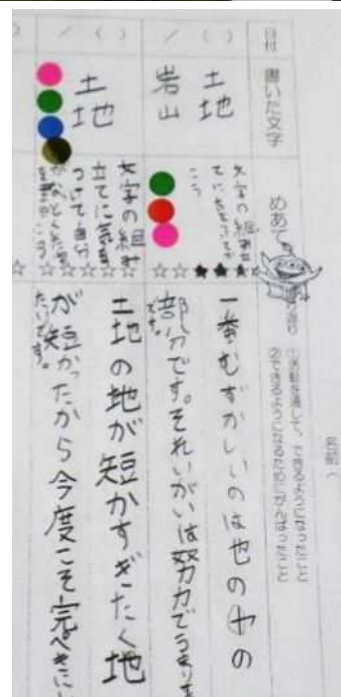 日付
書いた文字
めあて
①活動を通して、できるようになったこと
②できるようになるためにがんばったこと
名前(
土地
岩山
文字の組み立て
一番むずかしいのは也の
部分です。それいがいは努力で
です。
土地
文字の組み
立てに気を
つけて自分
土地の地が短かすぎたく地
が短かったから今度こそ完ぺきにし
たいです。